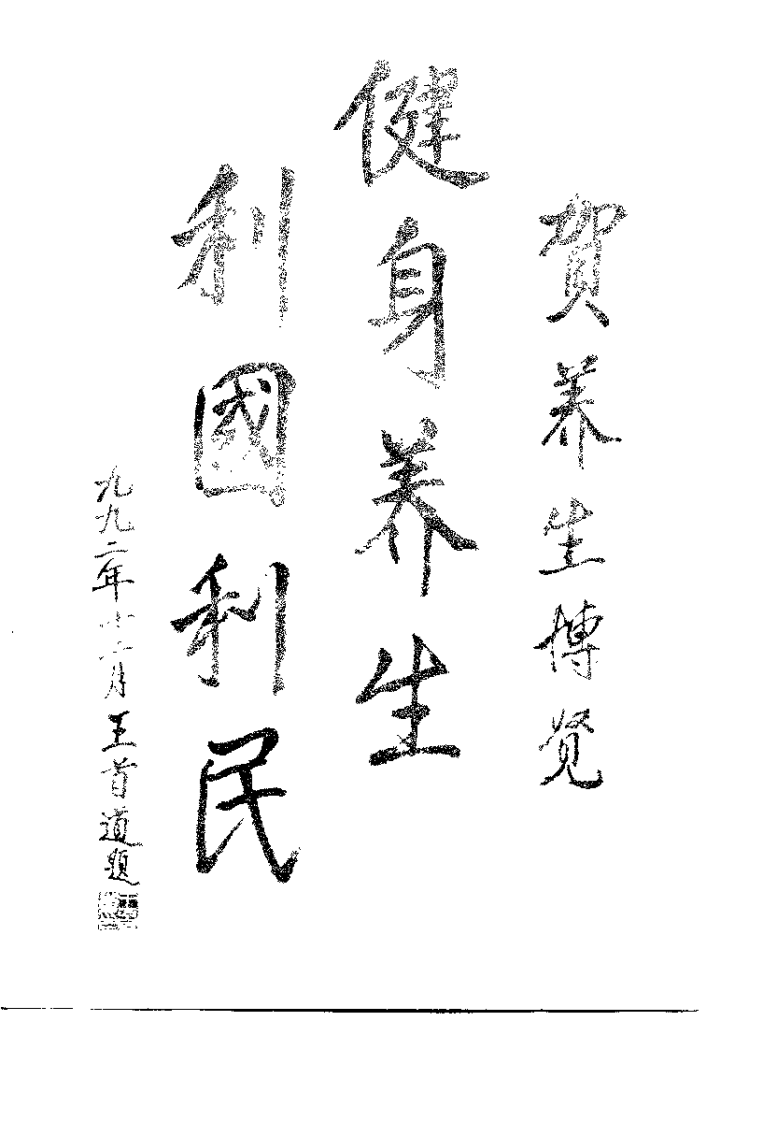 賀养生博览
健身养生
利國利民
一九九二年十一月王首道题